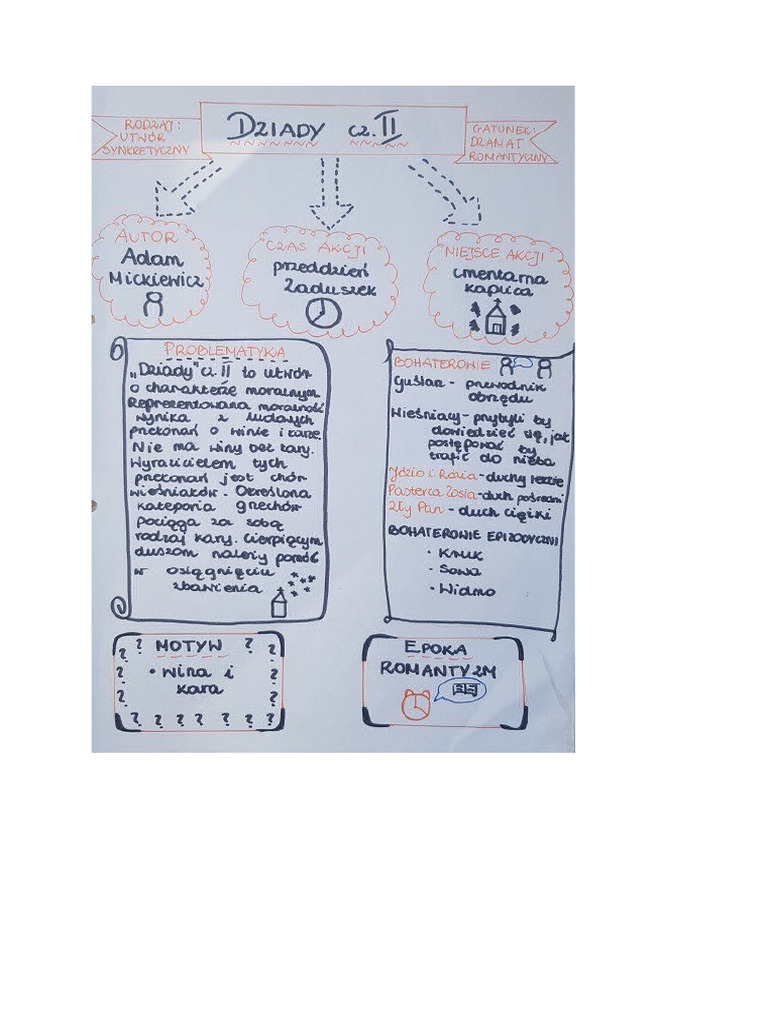 RODZAJ:
UTWÓR
SYNKRETYCZNY
DZIADY cz. II
GATUNEK:
DRAMAT
ROMANTYCZNY
AUTOR
Adam
Mickiewicz
CZAS AKCJI
przeddzień
Zaduszek
MIEJSCE AKCJI
cmentarna
kaplica
PROBLEMATYKA
„Dziady" cz. II to utwór
o charakterze moralnym.
Reprezentowana moralność
wynika z ludowych
przekonań o winie i karze.
Nie ma winy bez kary.
Wyrazicielem tych
przekonań jest chór
wieśniaków. Określona
kategoria grzechów
pociąga za sobą
rodzaj kary. Cierpiącym
duszom należy pomóc
w osiągnięciu
zbawienia
BOHATEROWIE
Guślarz - przewodnik
obrzędu
Wieśniacy - przybyli by
dowiedzieć się, jak
postępować by
trafić do nieba
Józio i Rózia - duchy lekkie
Pasterka Zosia - duch pośredni
Zły Pan - duch ciężki
BOHATEROWIE EPIZODYCZNI
• Kruk
- Sowa
• Widmo
? ? MOTYW ? ?
• wina i
kara
? ? ? ? ? ? ?
EPOKA
ROMANTYZM